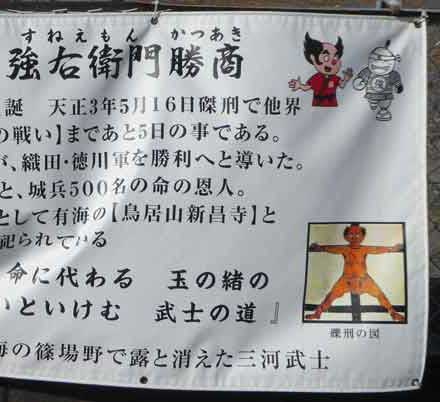 すねえもん かつあき
強右衛門勝商
誕 天正3年5月16日磔刑で他界
の戦い】まであと5日の事である。
が、織田・徳川軍を勝利へと導いた。
と、城兵500名の命の恩人。
として有海の【鳥居山新昌寺】と
祀られている
命に代わる 玉の緒の
いといけむ 武士の道 』
磔刑の図
海の篠場野で露と消えた三河武士